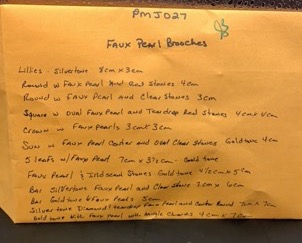 PMJ027
Faux Pearl Brooches
Lillies - Silvertone 8cm x 3cm
Round w Faux Pearl And Red Stones 4cm
Round w Faux Pearl and Clear Stones 3cm
Square w Oval Faux Pearl and Teardrop Red Stones 4cm x 4cm
Crown w Faux pearls 3cm x 3cm
Sun w Faux Pearl Center and Oval Clear Stones Goldtone 4cm
5 leafs w/Faux Pearl 7cm x 3½cm - Gold tone
Faux Pearl & Iridscent Stones Goldtone 4½cm x 5cm
Bar Silvertone Faux Pearl and Clear Stone 2cm x 6cm
Bar Goldtone 6 Faux Pearls 5cm
Silvertone Diamond Teardrop Faux Pearl and Center Round 7cm x 7cm
Goldtone with Faux Pearl with Charms 4cm x 7cm